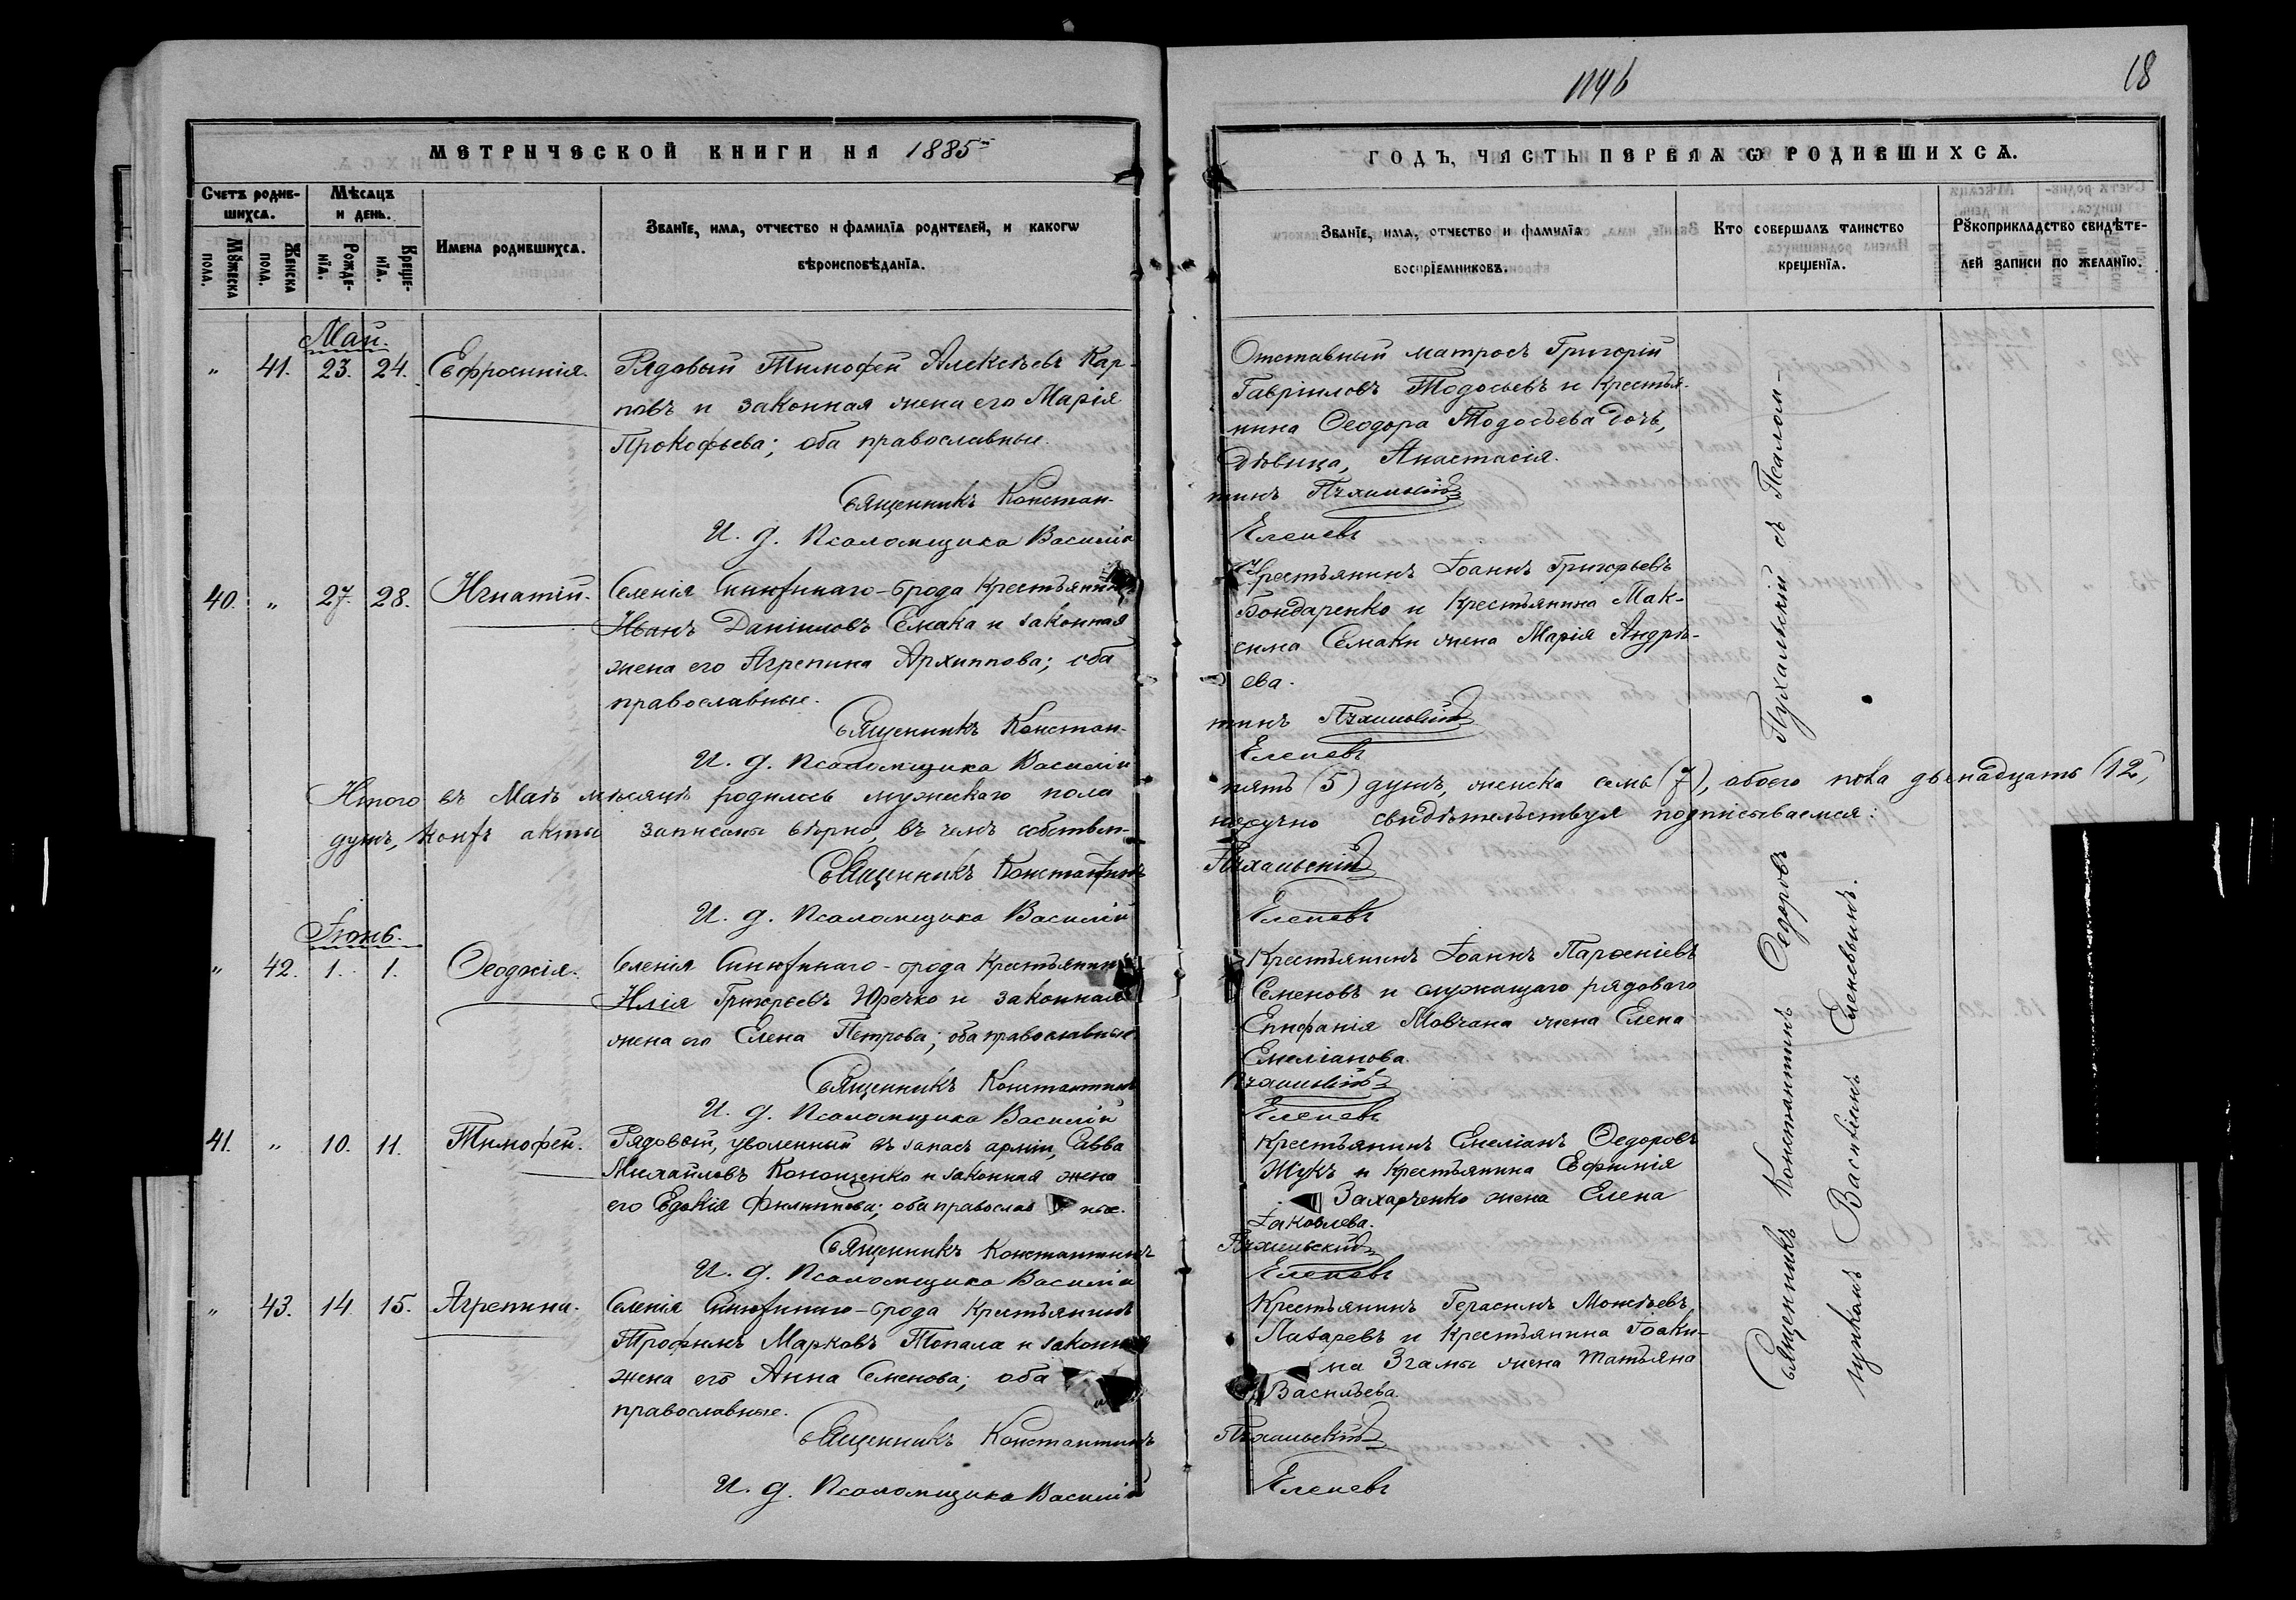 1196
18
МЕТРИЧЕСКОЙ КНИГИ НА 1885й
ГОДЪ, ЧАСТЬ ПЕРВАЯ Ѡ РОДИВШИХСЯ.
Счетъ родив-
шихся.
Мѣсяцъ
и день.
Мꙋжеска
пола.
Женска
пола.
Рожде-
нїа.
Креще-
нїа.
Имена родившихся.
Званїе, имя, отчество и фамилїа родителей, и какогѡ
вѣроисповѣданїа.
Званїе, имя, отчество и фамилїа
воспрїемниковъ.
Кто совершалъ таинство
крещенїя.
Рꙋкоприкладство свидѣте-
лей записи по желанїю.
Май.
" 41. 23. 24. Ефросинія.
Рядовый Тимофей Алексѣевъ Кар-
повъ и законная жена его Марія
Прокофьева; оба православные.
Священникъ Констан-
И. д. Псаломщика Василій
Отставный матросъ Григорій
Гавріиловъ Тодосьевъ и крестья-
нина Ѳеодора Тодосьева дочь,
дѣвица, Анастасія.
тинъ Пухальскій
Еленевъ
40. " 27. 28. Игнатій.
Селенія Синюхинаго-брода крестьянинъ
Иванъ Даніиловъ Семака и законная
жена его Агрепина Архиппова; оба
православные.
Священникъ Констан-
И. д. Псаломщика Василій
Крестьянинъ Іоаннъ Григорьевъ
Бондаренко и крестьянина Мак-
сима Семаки жена Марія Андрѣ-
ева.
тинъ Пухальскій
Еленевъ
Итого въ Маѣ мѣсяцѣ родилось мужескаго пола
пять (5) душъ, женска семь (7), обоего пола двенадцать (12)
душъ, коихъ акты записаны вѣрно, въ чемъ собствен-
норучно свидѣтельствуя подписываемся:
Священникъ Константинъ
Пухальскій
И. д. Псаломщика Василій
Еленевъ
Іюнь.
" 42. 1. 1. Ѳеодосія.
Селенія Синюхинаго-брода крестьянинъ
Илія Григорьевъ Юречко и законная
жена его Елена Петрова; оба православные.
Священникъ Константинъ
И. д. Псаломщика Василій
Крестьянинъ Іоаннъ Парѳеніевъ
Семеновъ и служащаго рядоваго
Епифанія Мовчана жена Елена
Емеліанова.
Пухальскій
Еленевъ
41. " 10. 11. Тимофей.
Рядовый, уволенный въ запасъ арміи, Савва
Михайловъ Кононценко и законная жена
его Евдокія Филиппова; оба православные.
Священникъ Константинъ
И. д. Псаломщика Василій
Крестьянинъ Емеліанъ Ѳедоровъ
Жукъ и крестьянина Евфимія
Захарченко жена Елена
Іаковлева.
Пухальскій
Еленевъ
" 43. 14. 15. Агрепина.
Селенія Синюхинаго-брода крестьянинъ
Трофимъ Марковъ Топала и законная
жена его Анна Семенова; оба
православные.
Священникъ Константинъ
И. д. Псаломщика Василій
Крестьянинъ Герасимъ Моисѣевъ
Лазаревъ и крестьянина Іоаки-
ма Згамы жена Татьяна
Васильева.
Пухальскій
Еленевъ
Священникъ Константинъ Ѳедоровъ Пухальскій съ Псалом-
щикомъ Василіемъ Еленевымъ.